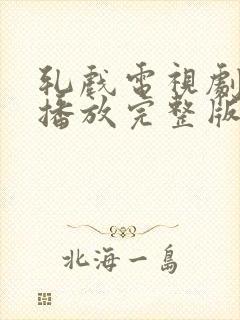 乳戲電視劇
播放完整版
北海一島